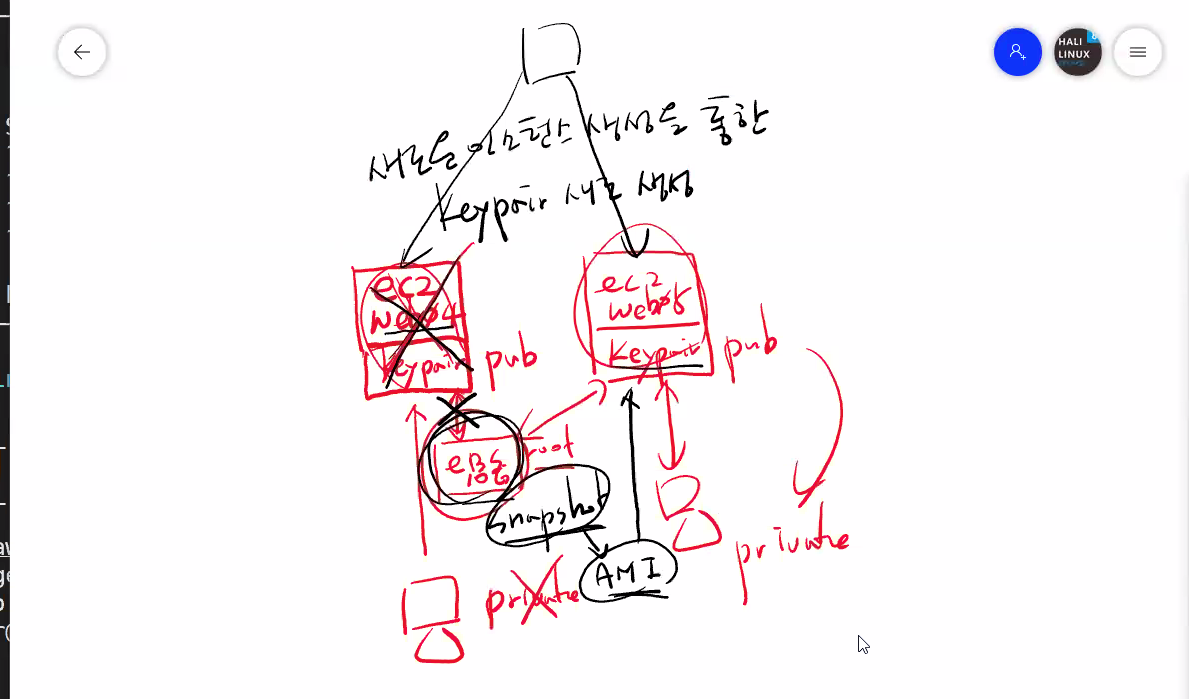 HALI
LINUX
새로운 인스턴스 생성을 통한
Keypair 새로 생성
ec2
web04
keypair
pub
ec2
web05
Keypair
pub
eBS
10G
root
snapshot
AMI
private
private